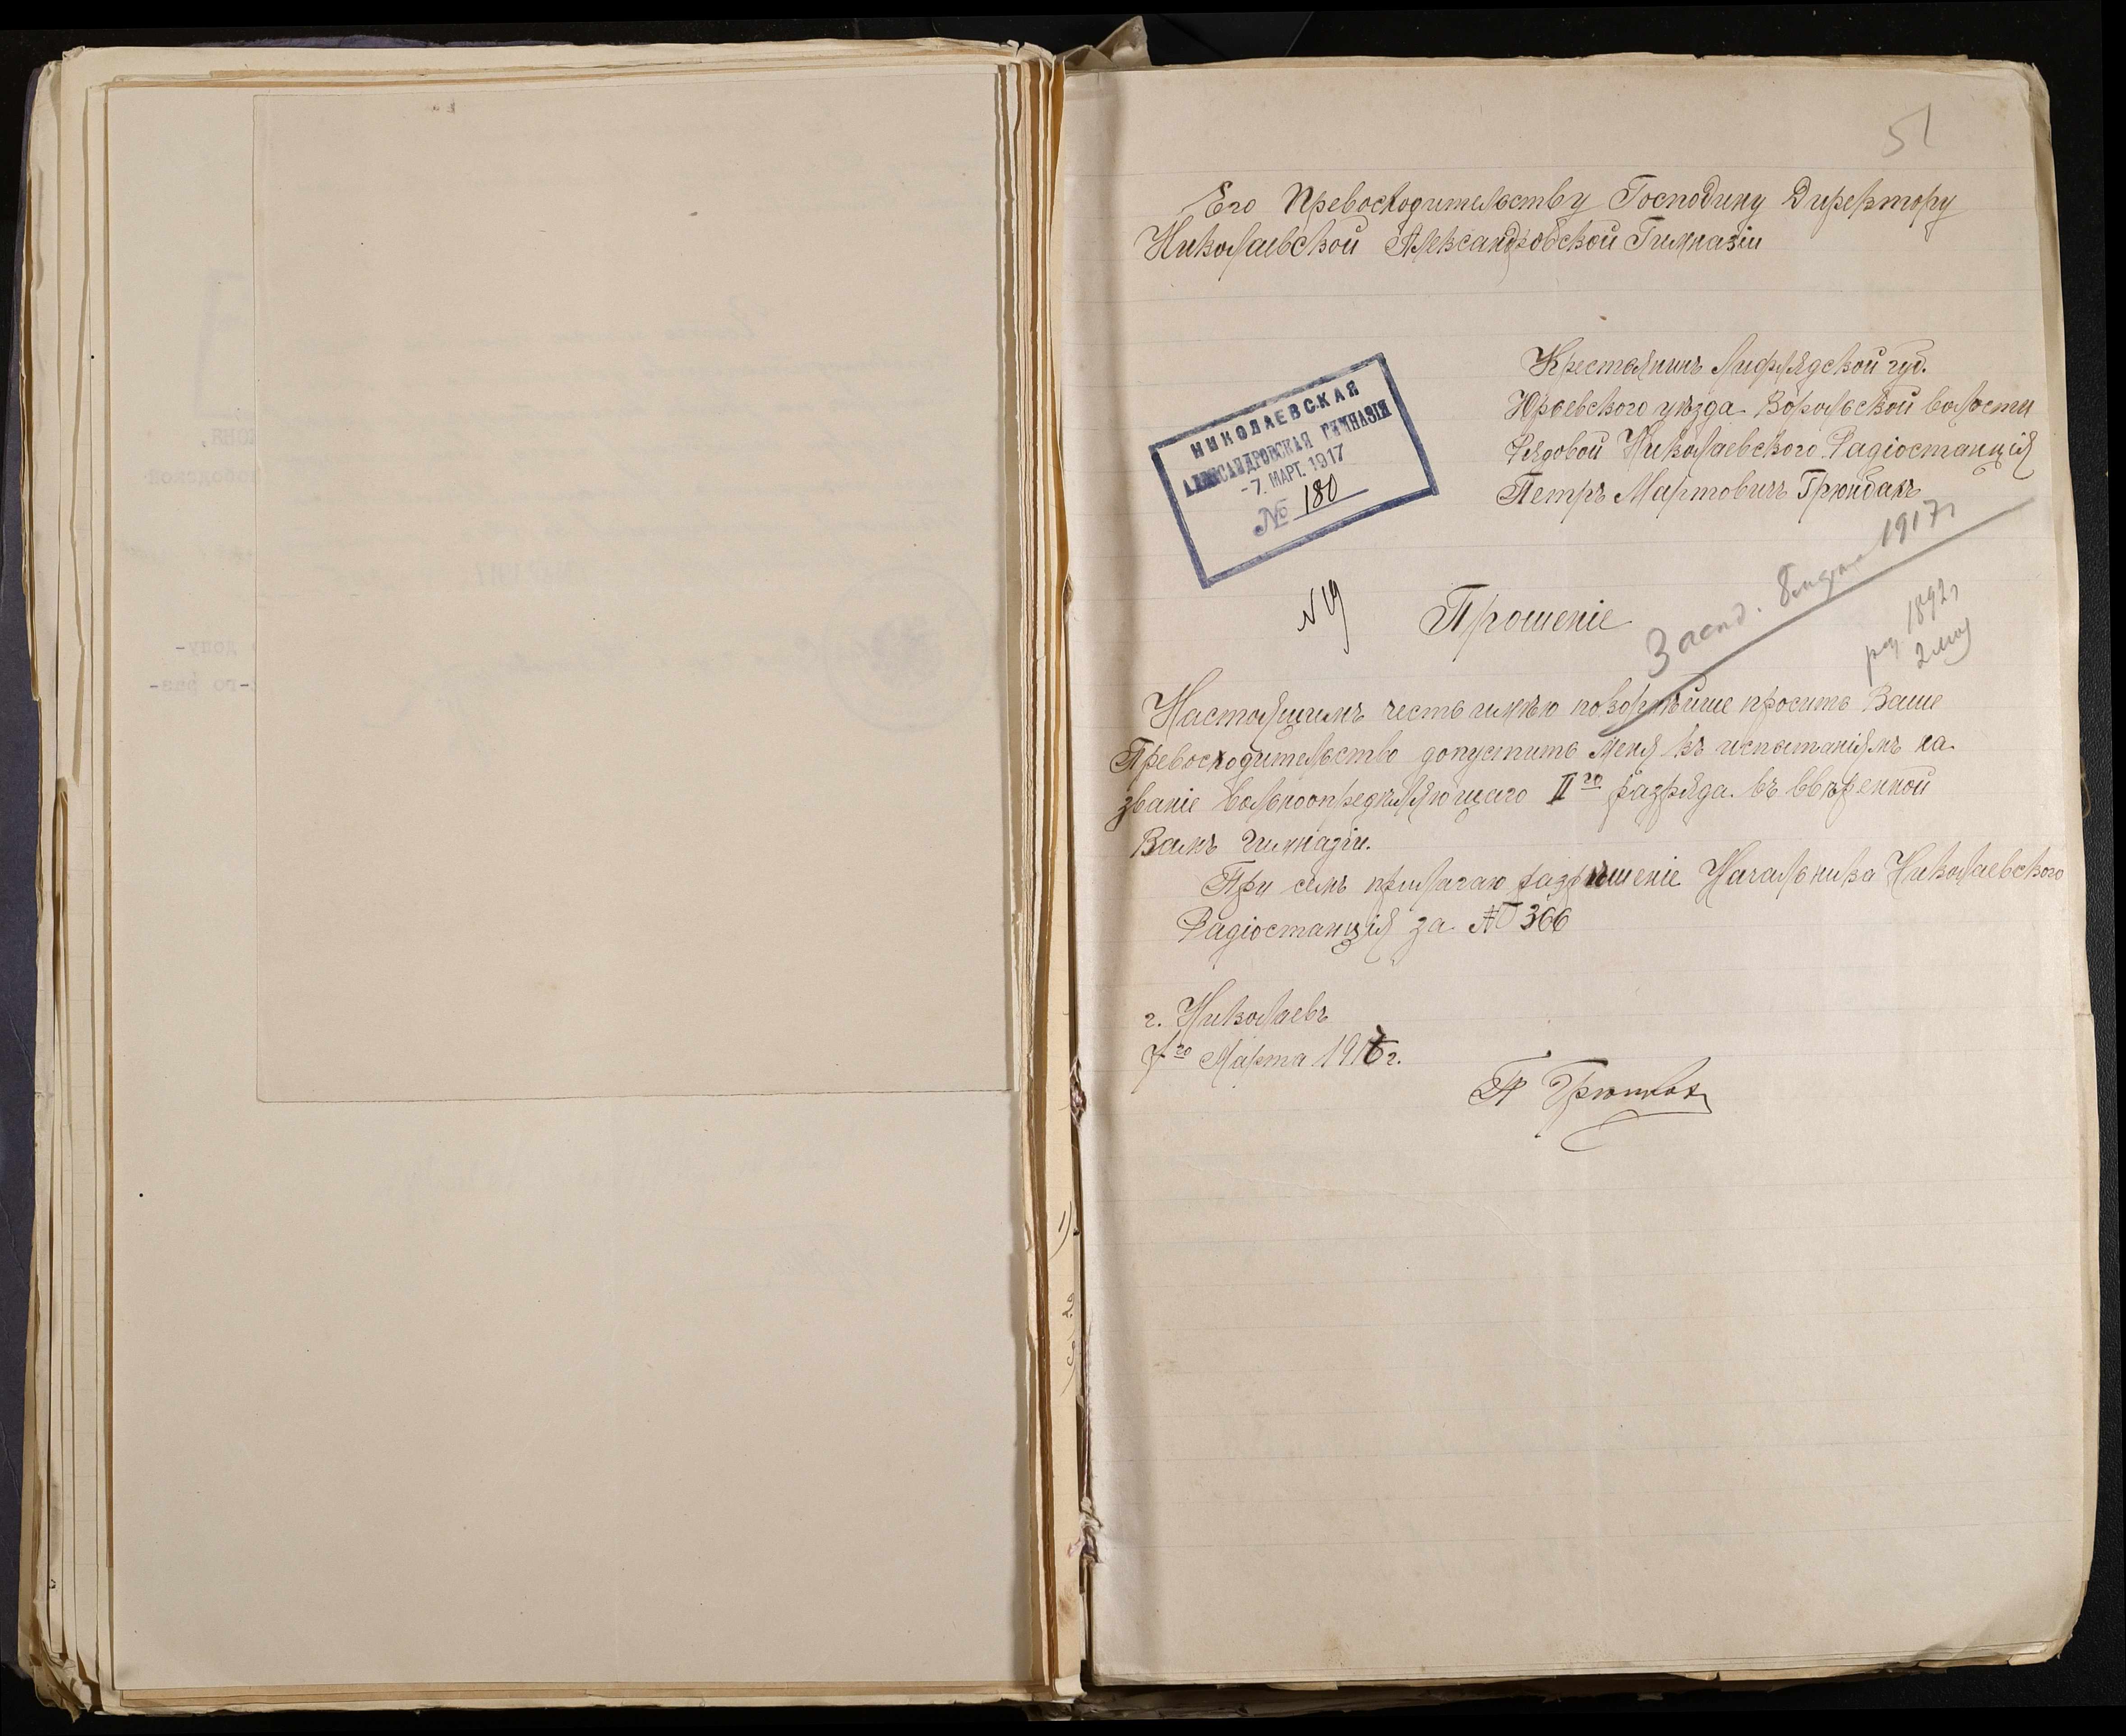 51
Его Превосходительству Господину Директору
Николаевской Александровской Гимназіи
Крестьянинъ Лифлядской губ.
Юрьевского уѣзда Ворольской волости
Рядовой Николаевского Радіостанція
Петръ Мартовичъ
НИКОЛАЕВСКАЯ
АЛЕКСАНДРОВСКАЯ ГИМНАЗІЯ
-7. МАРТ. 1917
№ 180
1917 г
N 19
Прошеніе
1892 г
2 мая
Настоящимъ честь имѣю покорнѣйше просить Ваше
Превосходительство допустить меня къ испытаніямъ на
званіе вольноопредѣляющаго II го разряда въ ввѣренной
Вамъ гимназіи.
При семъ прилагаю разрѣшеніе Начальника Николаевского
Радіостанція за № 366
г. Николаевъ
7 го Марта 1917 г.